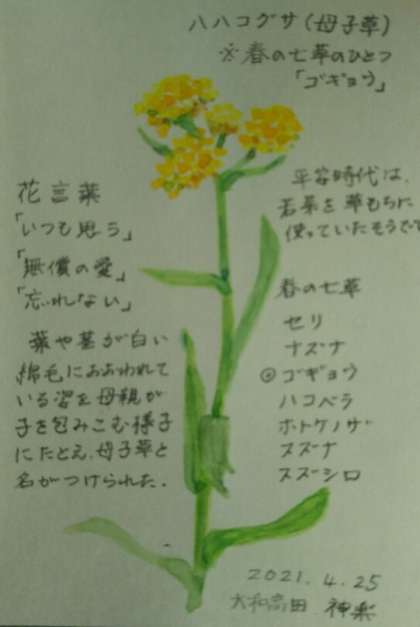 ハハコグサ(母子草)
※春の七草のひとつ
「ゴギョウ」
花言葉
「いつも思う」
「無償の愛」
「忘れない」
葉や茎が白い
綿毛におおわれて
いる姿を母親が
子を包みこむ様子
にたとえ、母子草と
名がつけられた.
平安時代は、
若葉を草もちに
使っていたそうで
春の七草
セリ
ナズナ
◎ゴギョウ
ハコベラ
ホトケノザ
スズナ
スズシロ
2021.4.25
大和高田 神楽